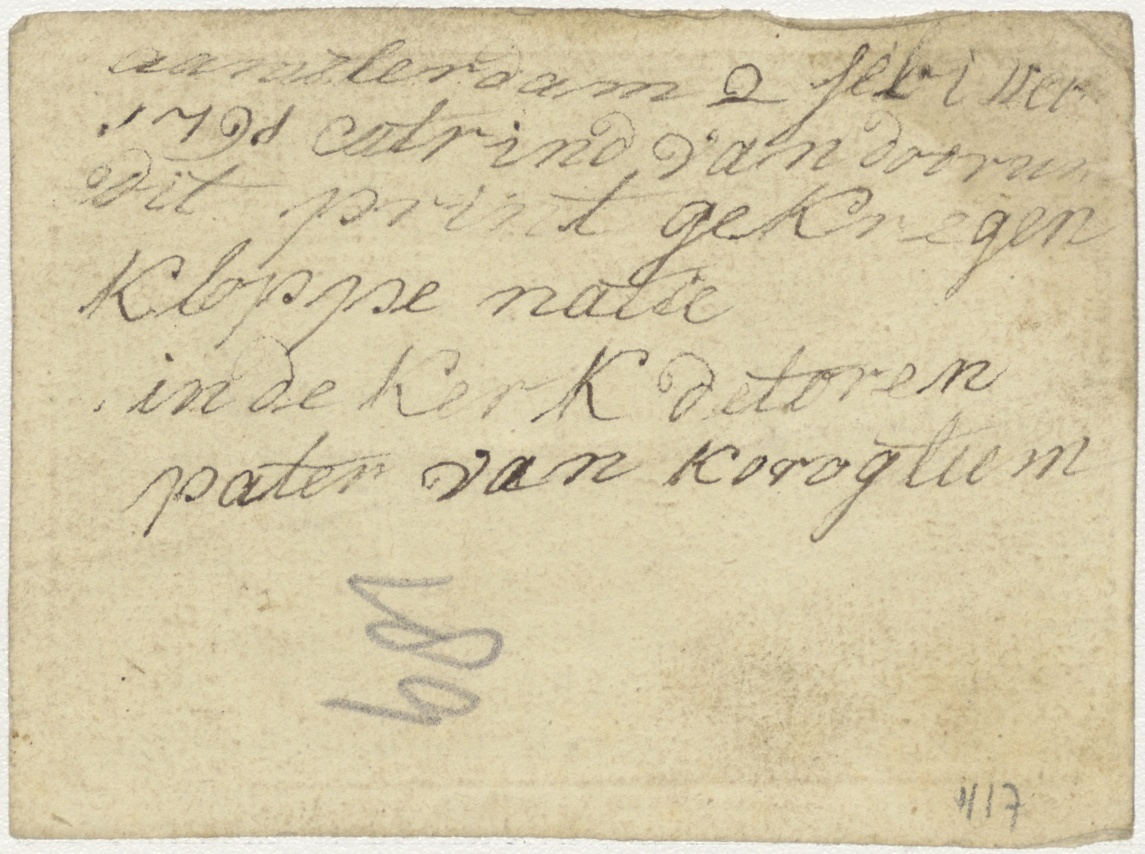 aamsterdam 2 febri
1791 catrina van doorum
dit print gekregen
kloppe natie
in de kerk de toren
pater van koroglum
189
417